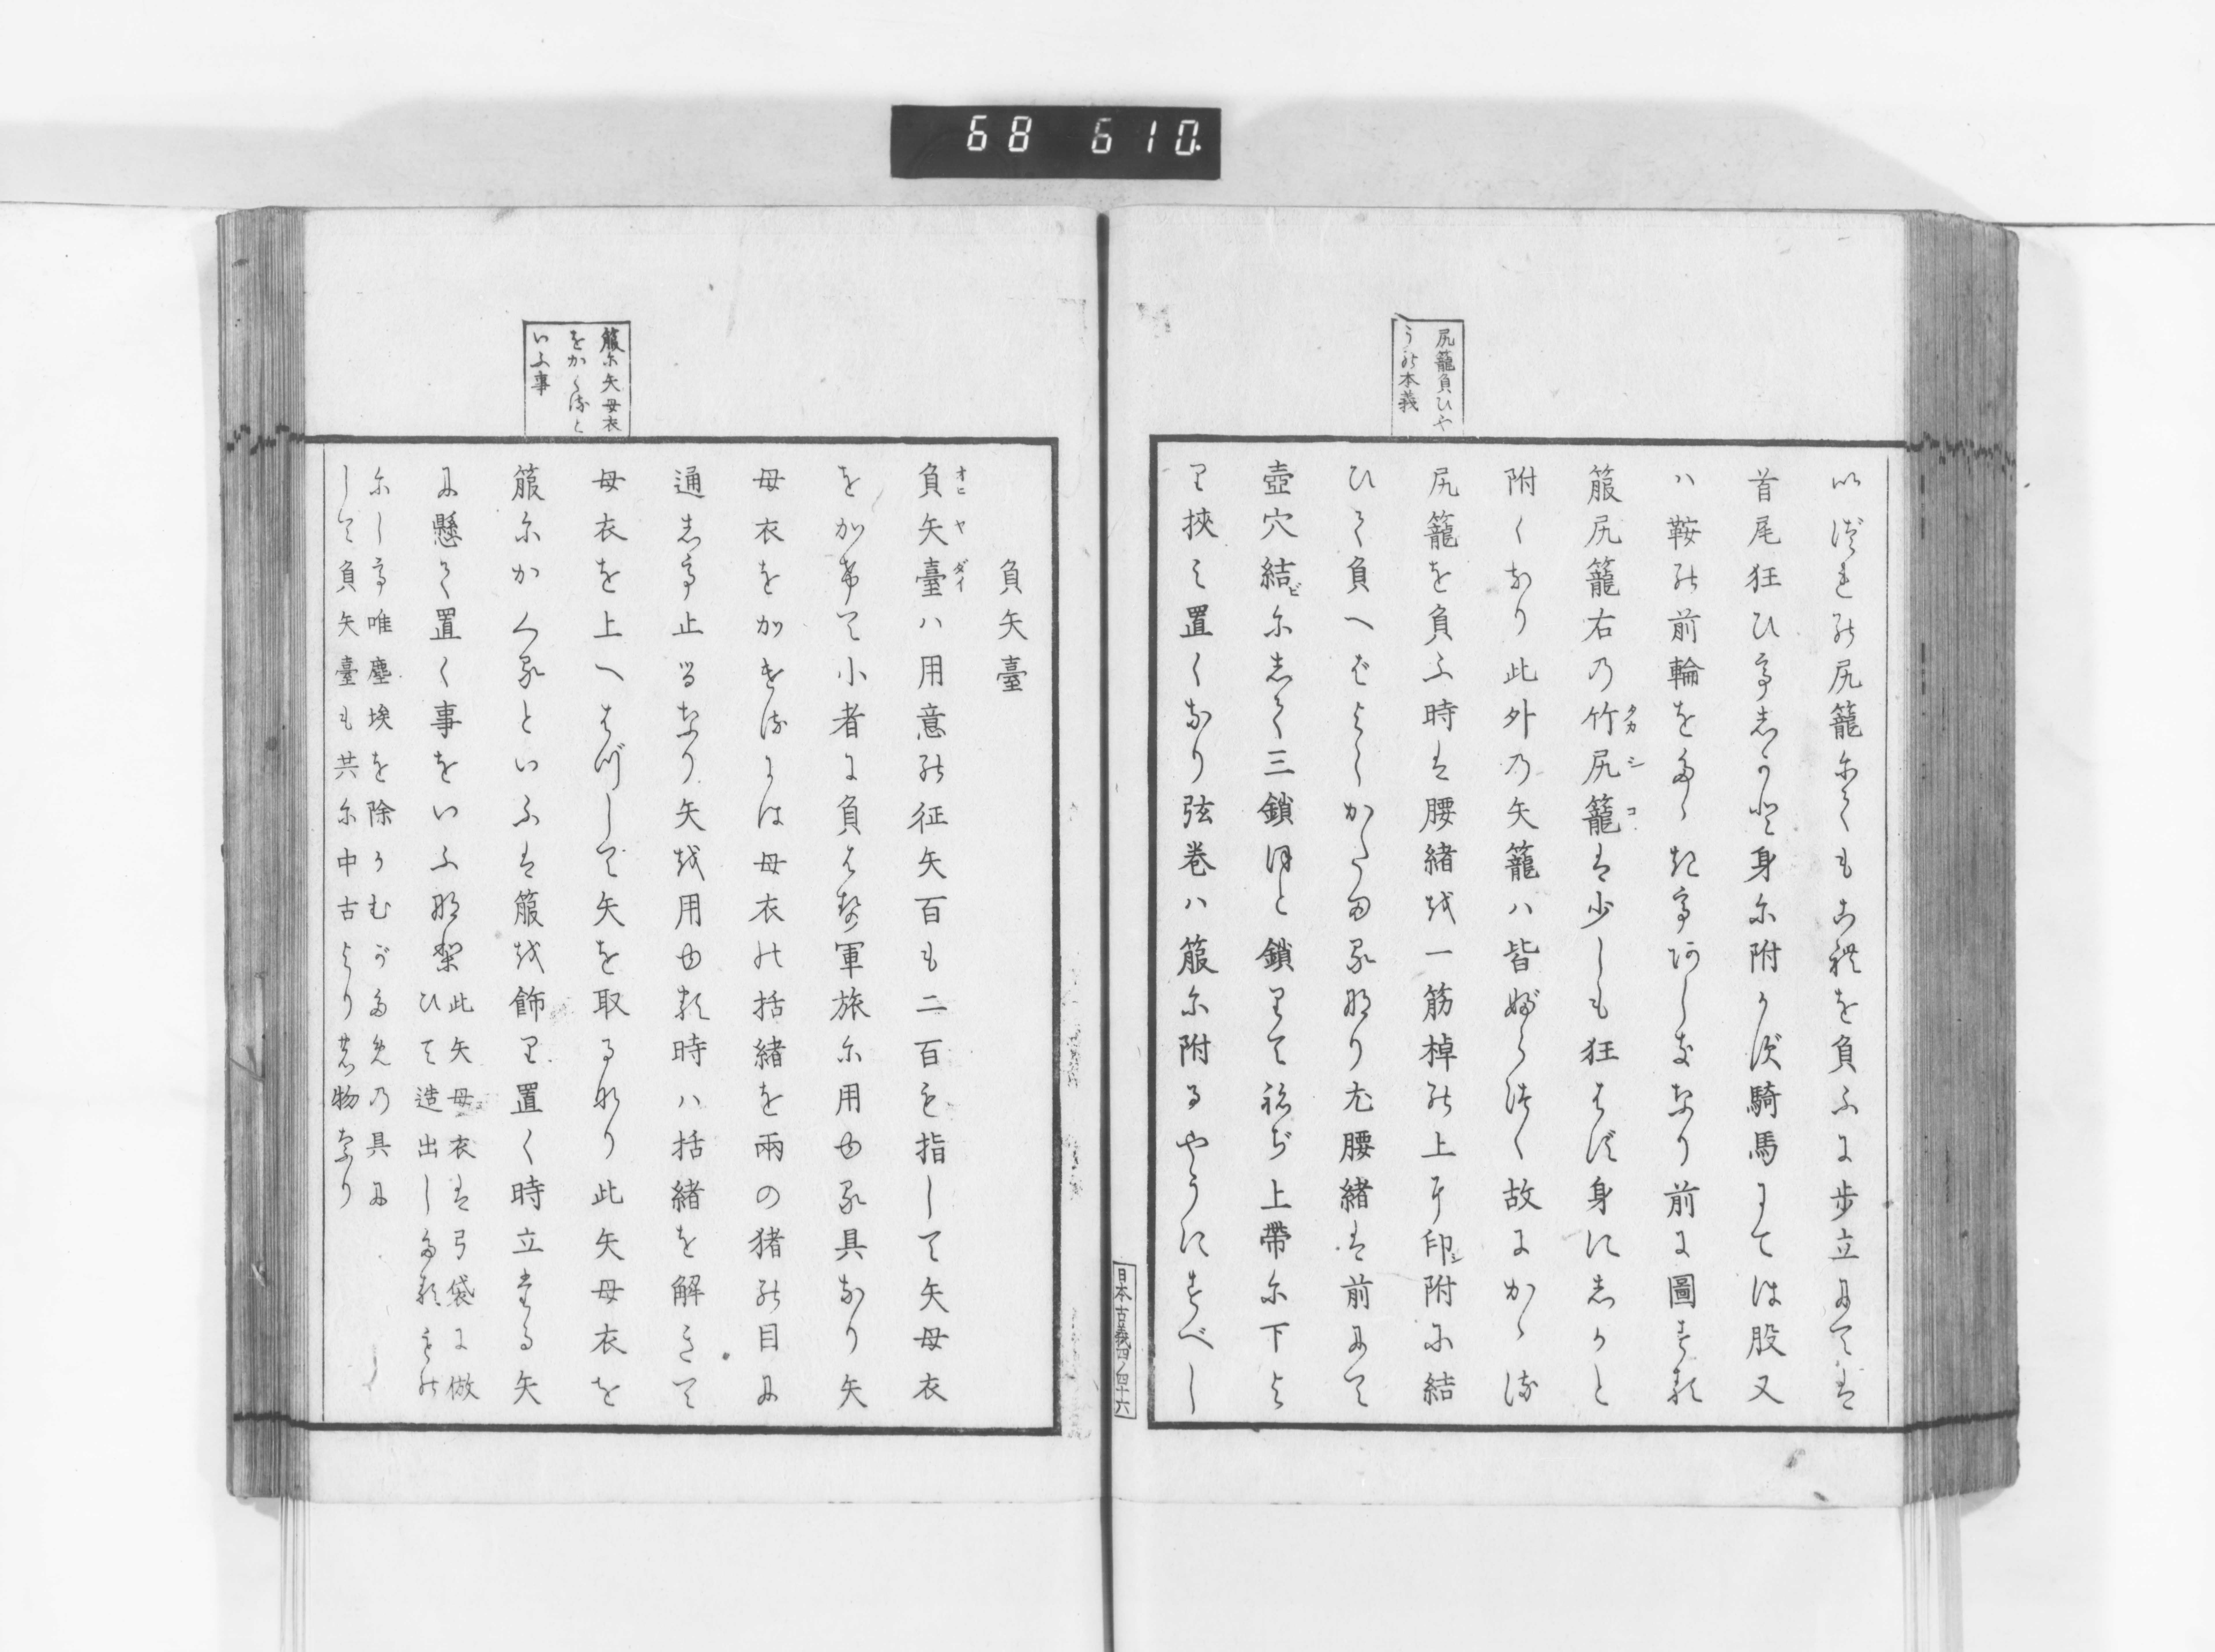 68 610.
尻籠負ひや
うの本義
いづれの尻籠にてもこれを負ふに歩立にては
首尾狂ひてしかと身に附かず騎馬にては股又
ハ鞍の前輪をたゝきてあしきなり前に圖する
箙尻籠右の竹尻籠は少しも狂はず身にしかと
タカシコ
附くなり此外の矢籠ハ皆ぶらつく故にかゝる
尻籠を負ふ時は腰緒を一筋棹の上に印附に結
シ
ひて負へばよくかたまるなり尤腰緒は前にて
壺穴結にして三鎖ほと鎖りてねぢ上帶に下よ
ビ
り挾み置くなり弦巻ハ箙に附るやうにすべし
日本古義四ノ四十六
箙に矢母衣
をかくると
いふ事
負矢臺
負矢臺ハ用意の征矢百も二百も指して矢母衣
オヒヤダイ
をかけて小者に負はせ軍旅に用ゆる具なり矢
母衣をかけるには母衣の括緒を兩の猪の目に
通して止るなり矢を用ゆる時ハ括緒を解きて
母衣を上へはづして矢を取るなり此矢母衣を
箙にかくるといふは箙を飾り置く時立たる矢
に懸て置く事をいふなり
此矢母衣は弓袋に倣
ひて造出したるもの
にして唯塵埃を除かむがための具に
して負矢臺も共に中古よりの物なり